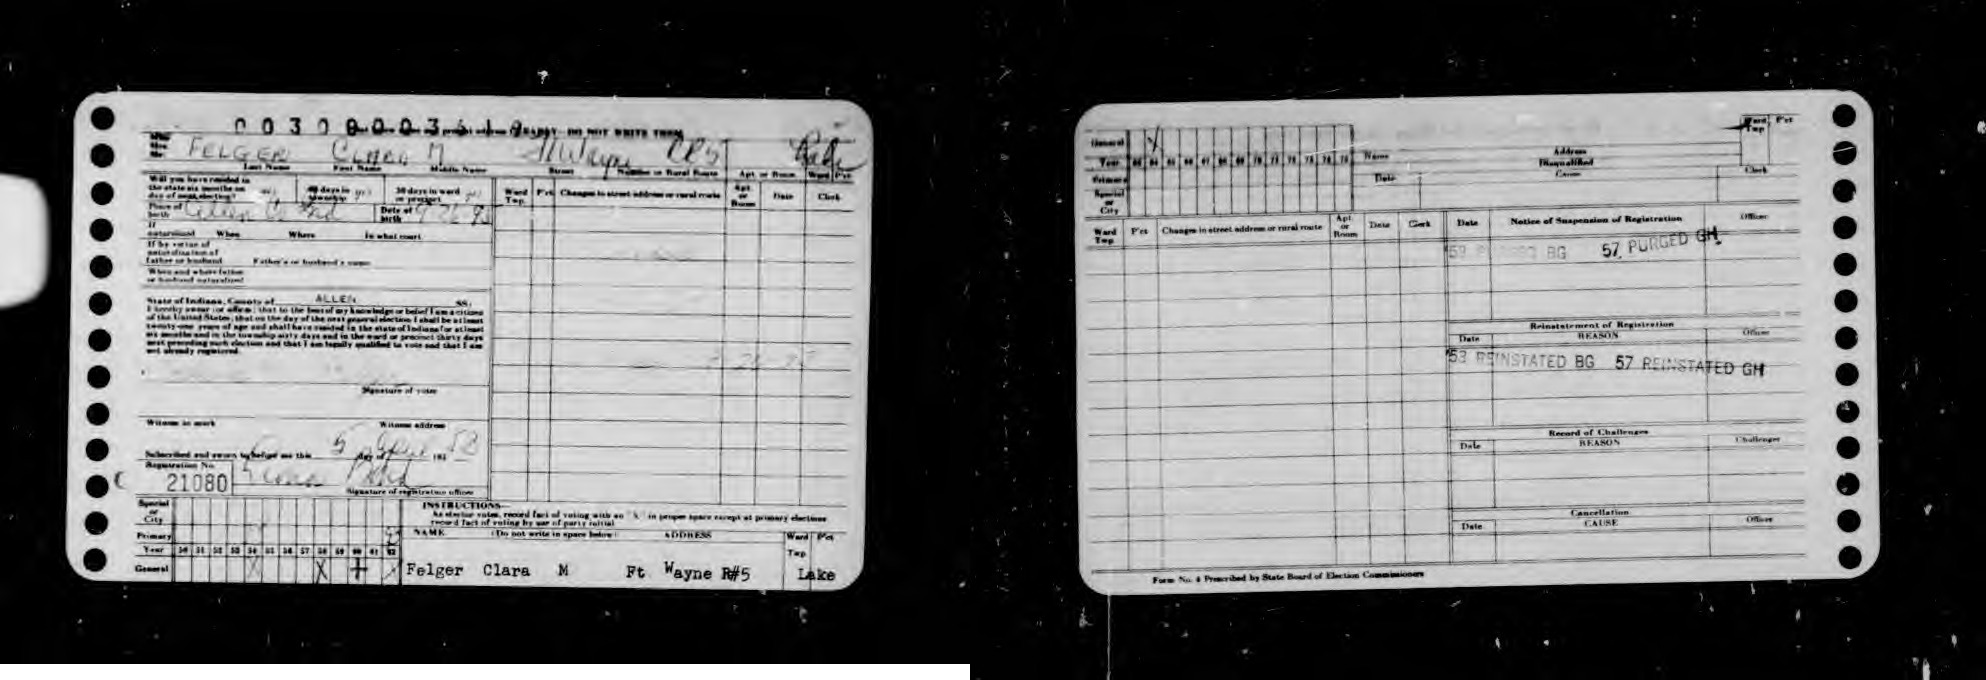 DO NOT WRITE THESE
FELGER CLARA M Ft Wayne RR5 Lake
Last Name First Name Middle Name Street Number or Rural Route Apt. or Room Ward P'ct
Will you have resided in
the state six months on
day of next election?
60 days in
township
30 days in ward
or precinct
Place of
birth Allen Co Ind Date of
birth
If
naturalized When Where In what court
If by virtue of
naturalization of
father or husband Father's or husband's name
When and where father
or husband naturalized
State of Indiana, County of ALLEN SS:
I hereby swear (or affirm) that to the best of my knowledge or belief I am a citizen
of the United States; that on the day of the next general election I shall be at least
twenty-one years of age and shall have resided in the state of Indiana for at least
six months and in the township sixty days and in the ward or precinct thirty days
next preceding such election and that I am legally qualified to vote and that I am
not already registered.
Signature of voter
Witness to mark Witness address
Subscribed and sworn to before me this 5 day of 195
Registration No.
21080
Signature of registration officer
Ward
Twp. P'ct Changes in street address or rural route Apt.
or
Room Date Clerk
Special
or
City
Primary
Year 50 51 52 53 54 55 56 57 58 59 60 61 62
General X X X
INSTRUCTIONS—
As elector votes, record fact of voting with an "X" in proper space except at primary elections
record fact of voting by use of party initial
NAME (Do not write in space below) ADDRESS Ward
Twp P'ct
Felger Clara M Ft Wayne R#5 Lake
General X
Year 63 64 65 66 67 68 69 70 71 72 73 74 75
Primary
Special
or
City
Name Address
Disqualified
Date Cause Clerk
Ward
Twp P'ct
Ward
Twp P'ct Changes in street address or rural route Apt.
or
Room Date Clerk
Date Notice of Suspension of Registration Officer
53 PURGED BG 57 PURGED GH
Reinstatement of Registration
Date REASON Officer
53 REINSTATED BG 57 REINSTATED GH
Record of Challenges
Date REASON Challenger
Cancellation
Date CAUSE Officer
Form No. 4 Prescribed by State Board of Election Commissioners